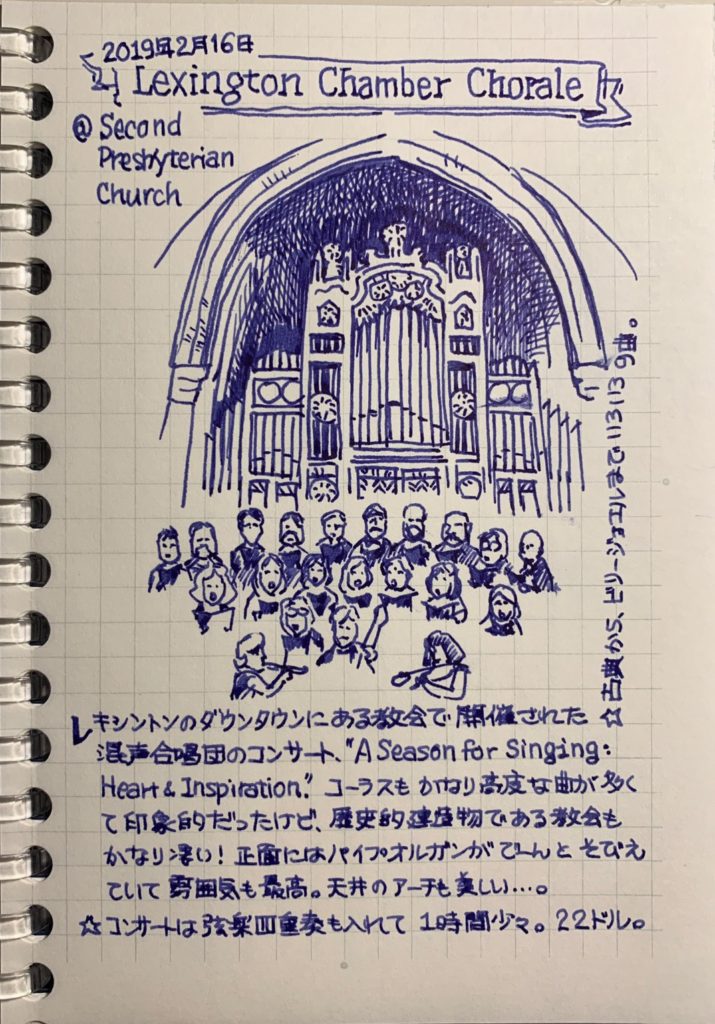 2019年2月16日
Lexington Chamber Chorale
@ Second
Presbyterian
Church
☆古典から、ビリージョエルまでいろいろ9曲。
レキシントンのダウンタウンにある教会で開催された
混声合唱団のコンサート、“A Season for Singing:
Heart & Inspiration.” コーラスもかなり高度な曲が多く
て印象的だったけど、歴史的建造物である教会も
かなり凄い！正面にはパイプオルガンがでーんとそびえ
ていて雰囲気も最高。天井のアーチも美しい…。
☆コンサートは弦楽四重奏も入れて 1時間少々。22ドル。